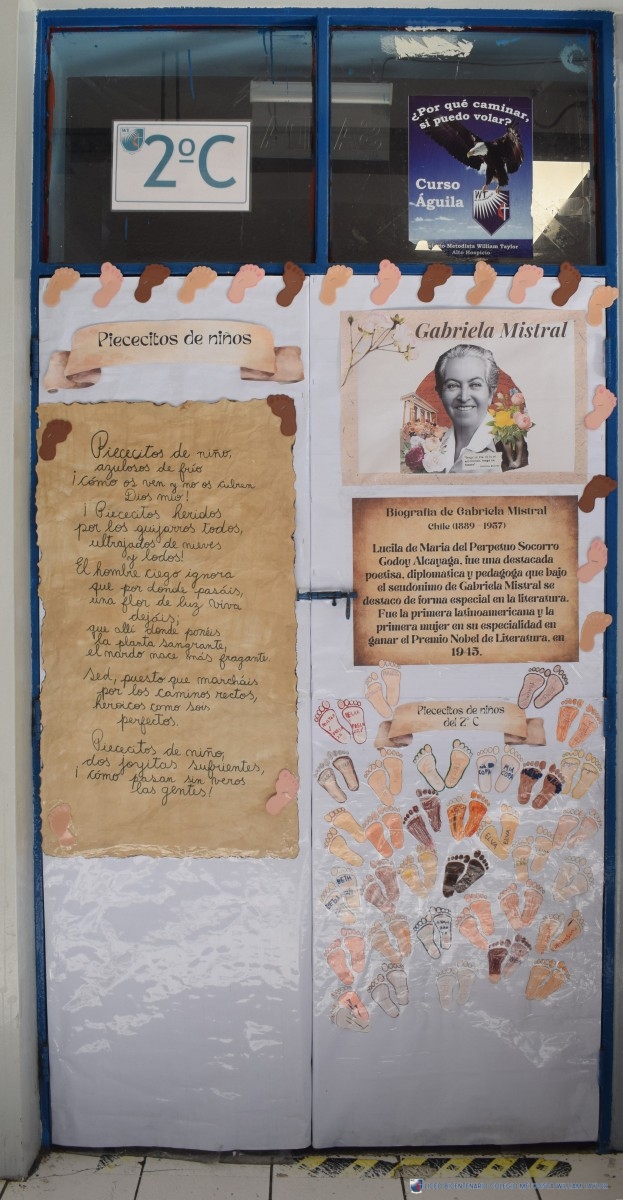 2ºC
¿Por qué caminar,
si puedo volar?
Curso
Águila
WT
Metodista William Taylor
Alto Hospicio
Piececitos de niños
Piececitos de niño,
azulosos de frío
¡cómo os ven y no os cubren
Dios mío!
¡Piececitos heridos
por los guijarros todos,
ultrajados de nieves
y lodos!
El hombre ciego ignora
que por donde pasáis,
una flor de luz viva
dejáis;
que allí donde ponéis
la planta sangrante,
el nardo nace más fragante.
Sed, puesto que marcháis
por los caminos rectos,
heroicos como sois
perfectos.
Piececitos de niño,
dos joyitas sufrientes,
¡cómo pasan sin veros
las gentes!
Gabriela Mistral
Biografía de Gabriela Mistral
Chile (1889 - 1957)
Lucila de María del Perpetuo Socorro
Godoy Alcayaga, fue una destacada
poetisa, diplomática y pedagoga que bajo
el seudonimo de Gabriela Mistral se
destaco de forma especial en la literatura.
Fue la primera latinoamericana y la
primera mujer en su especialidad en
ganar el Premio Nobel de Literatura, en
1945.
Piececitos de niños
del 2º C
LICEO BICENTENARIO COLEGIO METODISTA WILLIAM TAYLOR